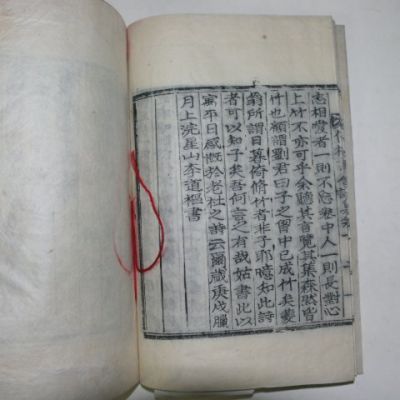 志相愛者一則不忘塾中人一則長對心
上竹不亦可乎余聽其言覽其集森然皆
竹也顧謂劉君曰子之胷中已成竹矣夔
翁所謂日暮倚脩竹者非子耶噫知此詩
者可以知子矣吾何言之有哉姑書此以
寓平日感慨於老杜之詩云爾歲庚戌臘
月上浣星山李道樞書